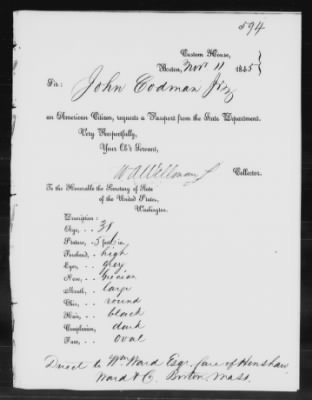 594
Custom House,
Boston, Nov 11 1845
Sir:
John Codman Jr
an American Citizen, requests a Passport from the State Department.
Very Respectfully,
Your Ob't Servant,
Collector.
To the Honorable the Secretary of State
of the United States,
Washington.
Description:
Age, . . 31
Stature, 5 feet in
Forehead, . . high
Eyes, . . grey
Nose, . . Grecian
Mouth, . . large
Chin, . . round
Hair, . . black
Complexion, dark
Face, . . oval
Direct to Wm Ward Esqr. Care of Henshaw
Ward & Co. Boston Mass.